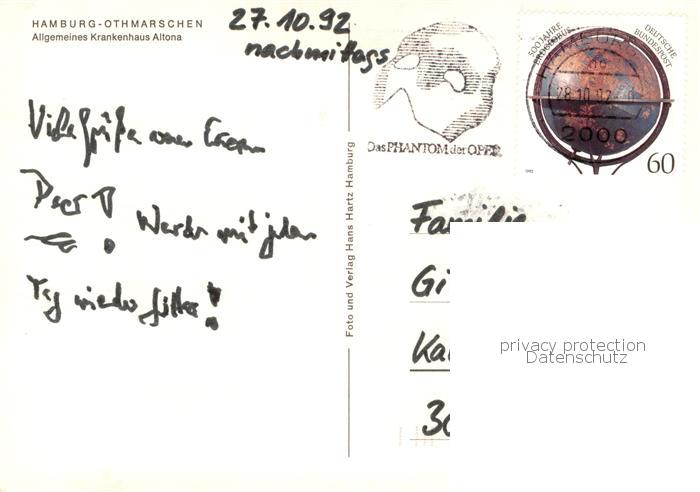 HAMBURG-OTHMARSCHEN
Allgemeines Krankenhaus Altona
27.10.92
nachmittags
Viele Grüße
Werde mit jedem
Tag wieder fitter!
Foto und Verlag Hans Hartz Hamburg
Das PHANTOM der OPER
500 JAHRE
ERDGLOBUS
DEUTSCHE
BUNDESPOST
28.10.92
2000
1992
60
Familie
Gi
Ka
30
privacy protection
Datenschutz